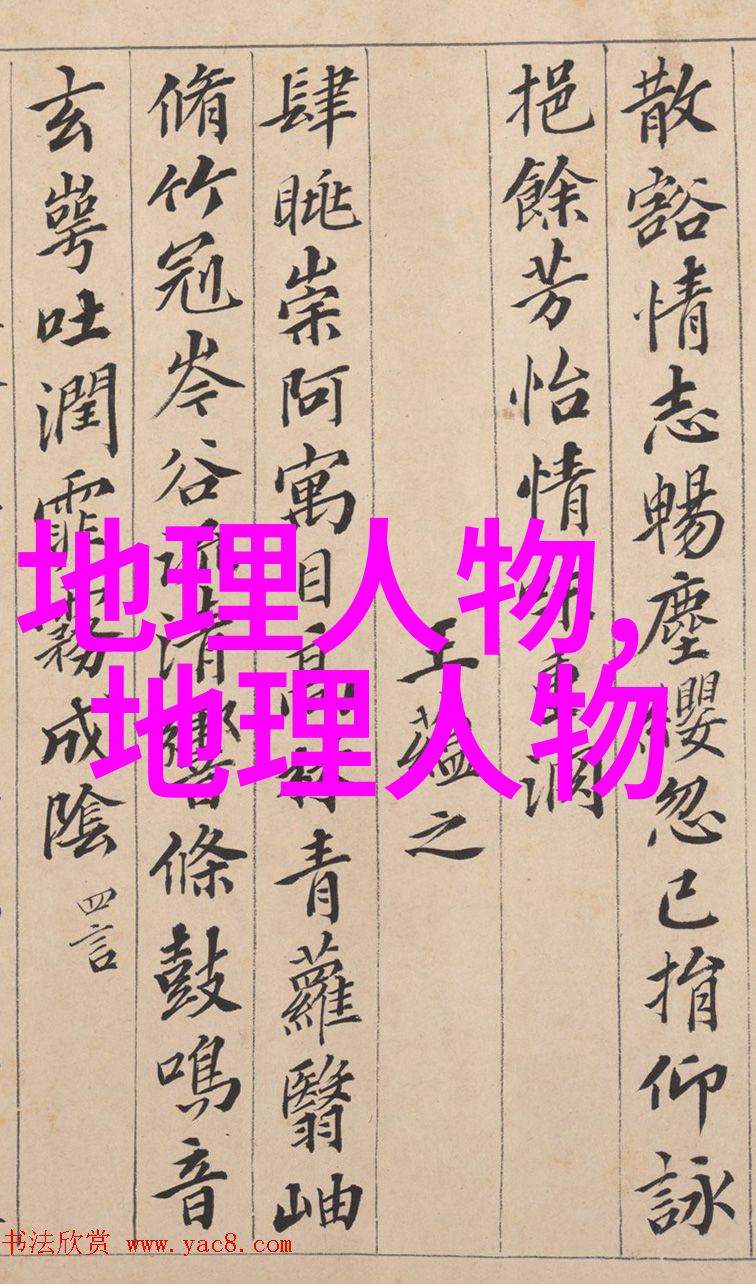 散豁情志暢塵纓忽已捐仰詠
挹餘芳怡情味重淵
王蘊之
肆眺崇阿寓目高林青蘿翳岫
脩竹冠岑谷流清響條鼓鳴音
玄崿吐潤霏霧成陰 四言
地理人物,
地理人物
书法欣赏 www.yac8.com